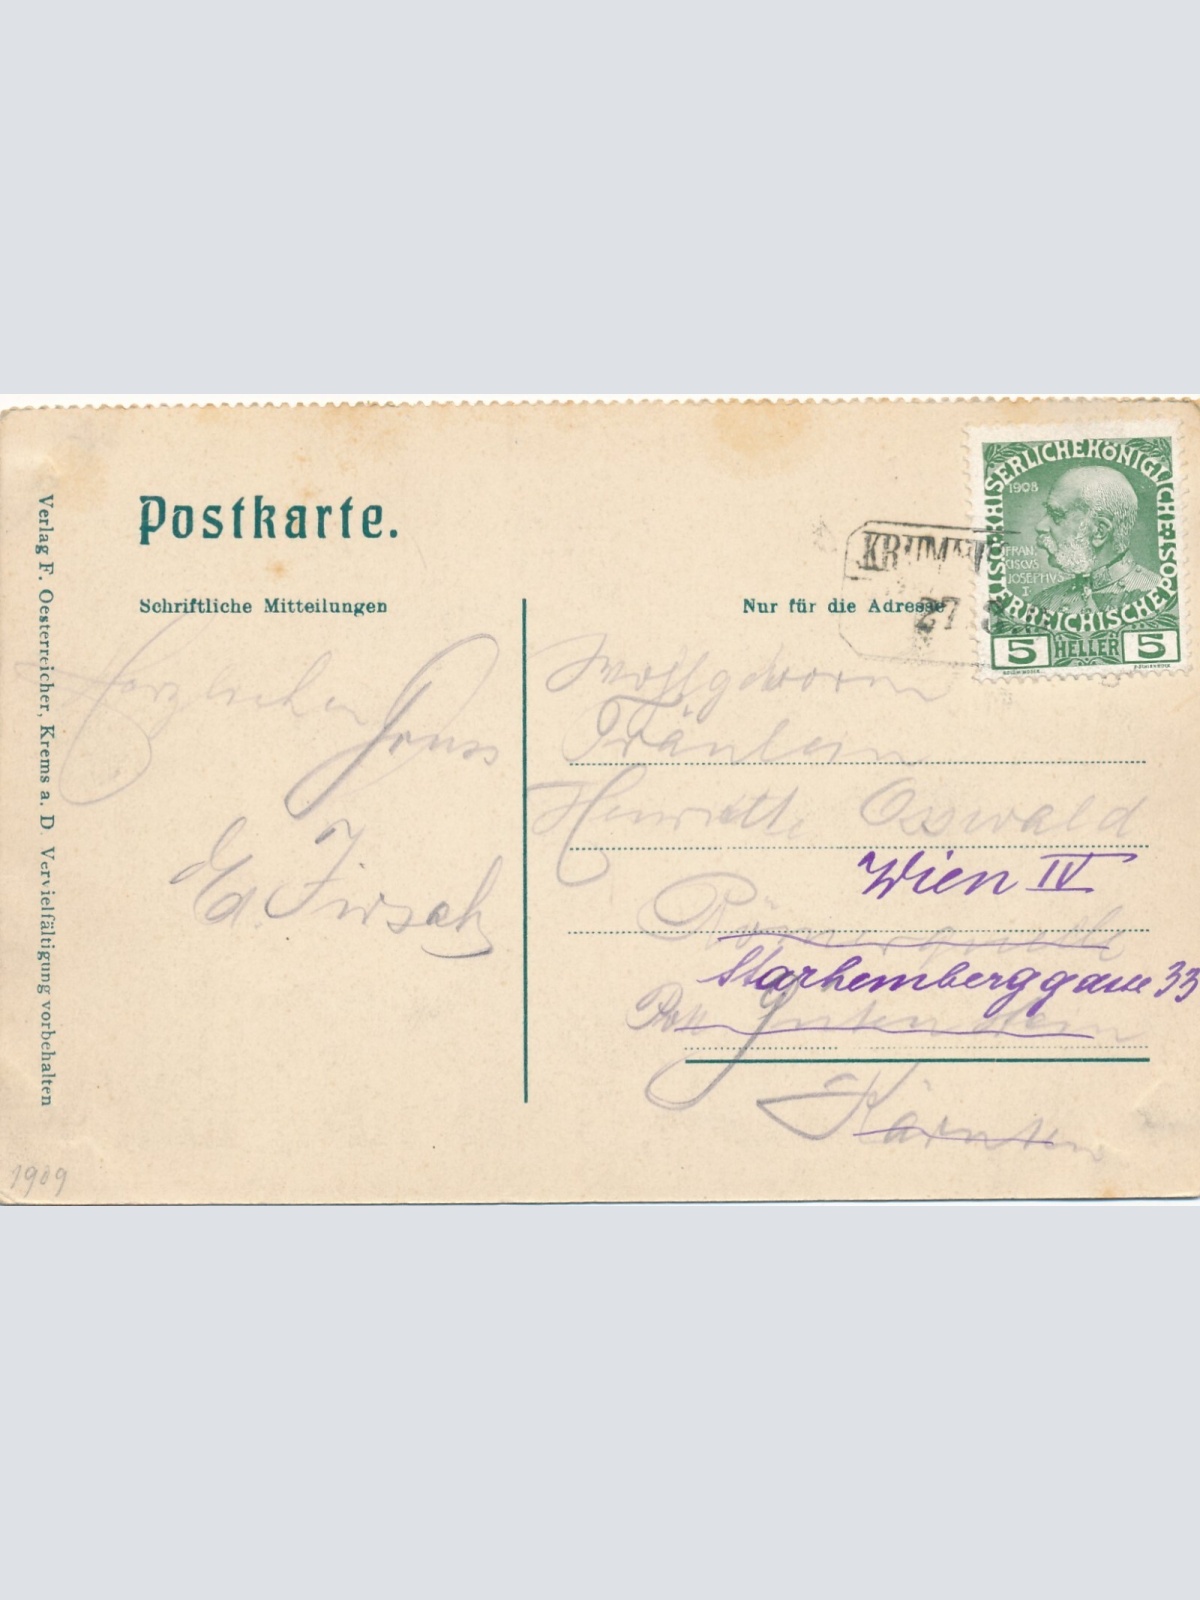 Postkarte.
Schriftliche Mitteilungen
Nur für die Adresse
Verlag F. Oesterreicher, Krems a. D. Vervielfältigung vorbehalten
KAISERLICHE KÖNIGLICHE ÖSTERREICHISCHE POST
1908
FRAN
CISCVS
JOSEPHVS
I
5 HELLER 5
27
Herzlichen
Gruss
Ed. Firsch
Wohlgeboren
Fräulein
Henriette Osswald
Wien IV
Römerquelle
Starhemberggasse 33
Post Gutenstein
Kärnten
1909